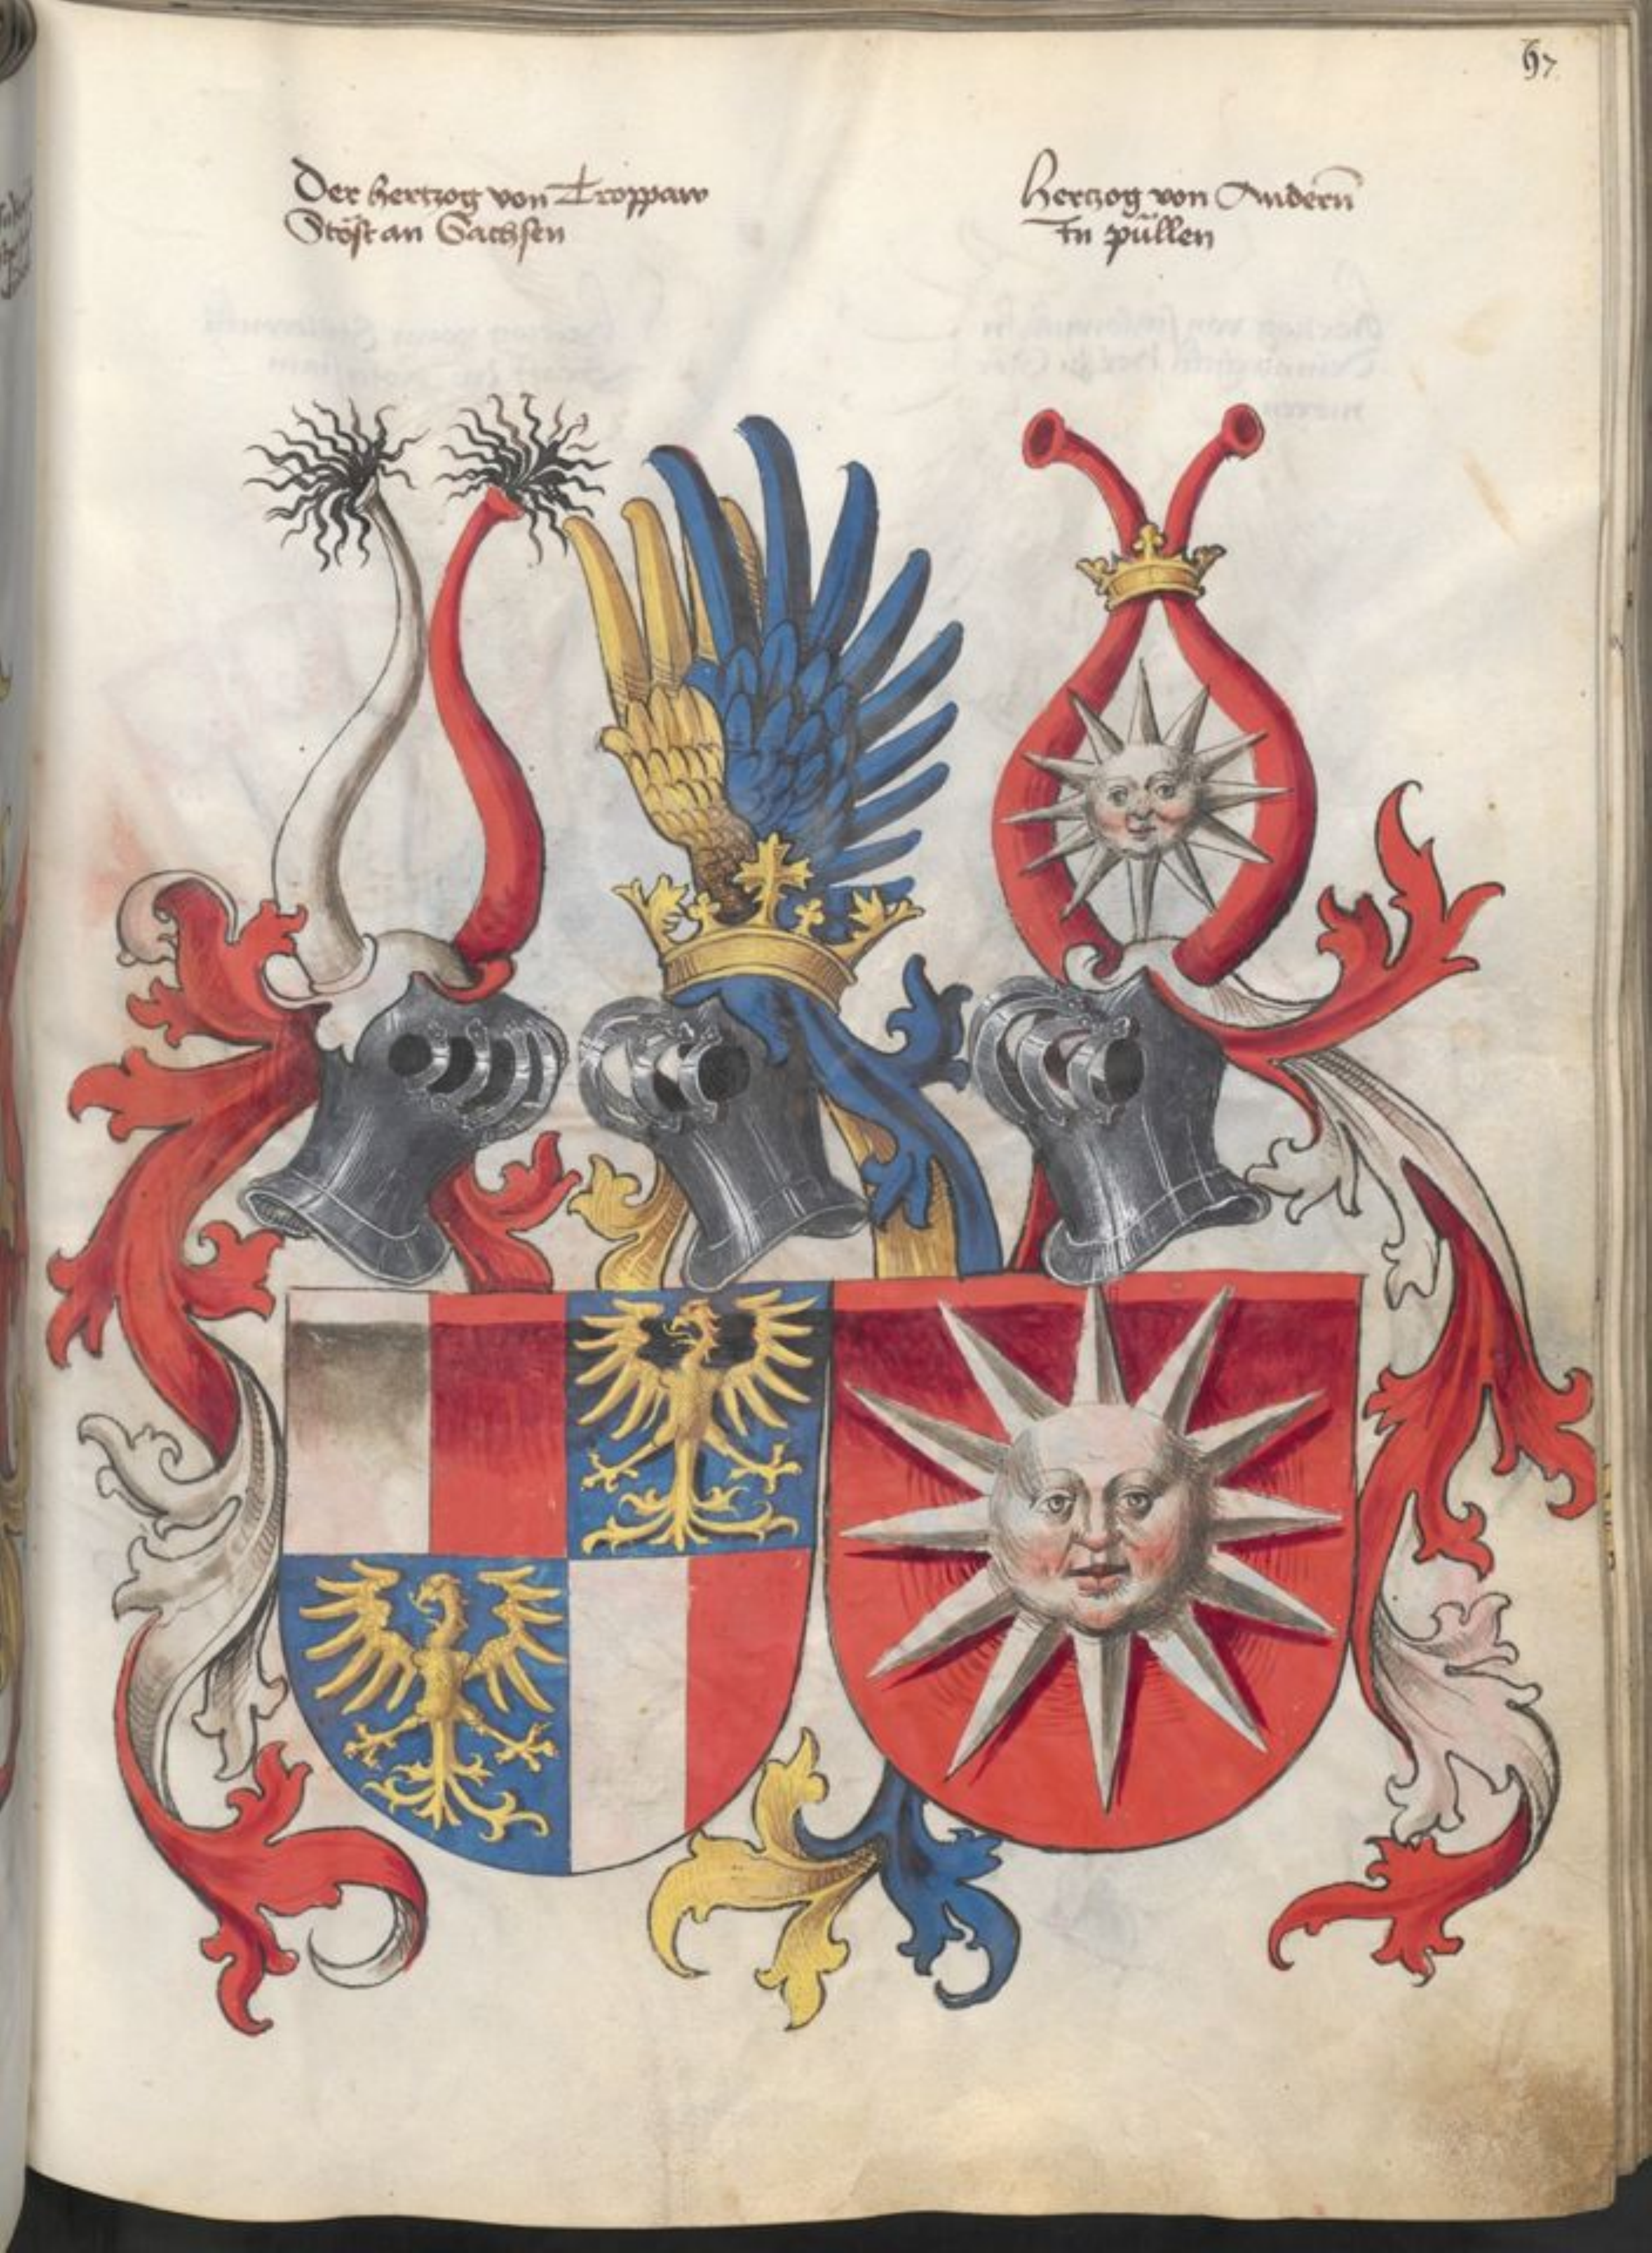 67
Der hertzog von Troppaw
Stöst an Sachsen
Hertzog von Andern̄
In püllen